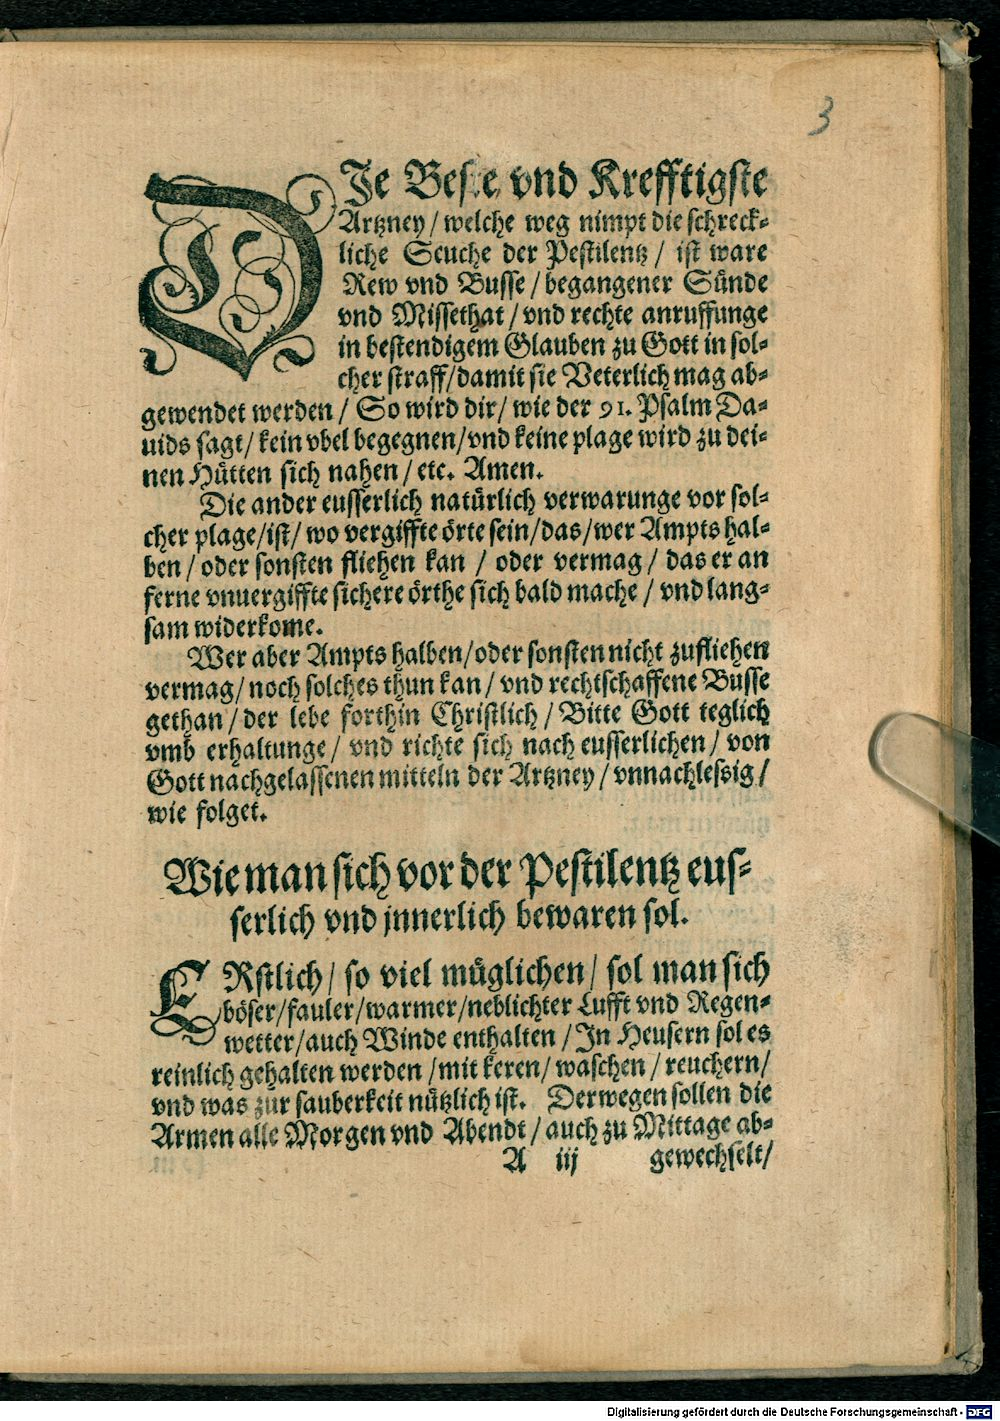 3
DJe Beste vnd Krefftigste
Artzney / welche weg nimpt die schreck⸗
liche Seuche der Pestilentz / ist ware
Rew vnd Busse / begangener Sünde
vnd Missethat / vnd rechte anruffunge
in bestendigem Glauben zu Gott in sol⸗
cher straff / damit sie Veterlich mag ab⸗
gewendet werden / So wird dir / wie der 91. Psalm Da⸗
uids sagt / kein vbel begegnen / vnd keine plage wird zu dei⸗
nen Hütten sich nahen / etc. Amen.
Die ander eusserlich natürlich verwarunge vor sol⸗
cher plage / ist / wo vergiffte örte sein / das / wer Ampts hal⸗
ben / oder sonsten fliehen kan / oder vermag / das er an
ferne vnuergiffte sichere örthe sich bald mache / vnd lang⸗
sam widerkome.
Wer aber Ampts halben / oder sonsten nicht zufliehen
vermag / noch solches thun kan / vnd rechtschaffene Busse
gethan / der lebe forthin Christlich / Bitte Gott teglich
vmb erhaltunge / vnd richte sich nach eusserlichen / von
Gott nachgelassenen mitteln der Artzney / vnnachlessig /
wie folget.
Wie man sich vor der Pestilentz eus⸗
serlich vnd jnnerlich bewaren sol.
ERstlich / so viel müglichen / sol man sich
böser / fauler / warmer / neblichter Lufft vnd Regen⸗
wetter / auch Winde enthalten / Jn Heusern sol es
reinlich gehalten werden / mit keren / waschen / reuchern /
vnd was zur sauberkeit nützlich ist. Derwegen sollen die
Armen alle Morgen vnd Abendt / auch zu Mittage ab⸗
A iij gewechselt /
Digitalisierung gefördert durch die Deutsche Forschungsgemeinschaft - DFG